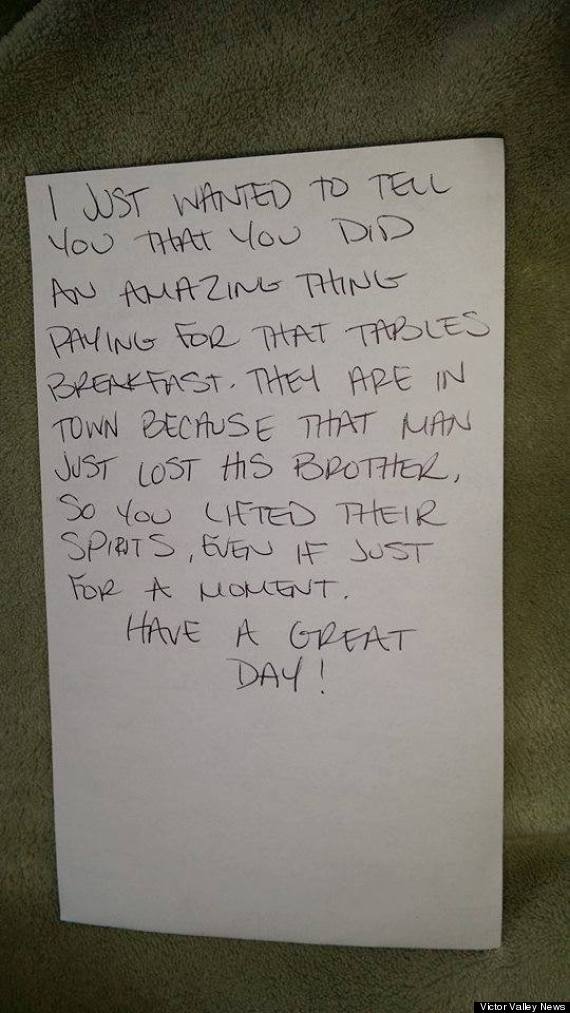 I JUST WANTED TO TELL
YOU THAT YOU DID
AN AMAZING THING
PAYING FOR THAT TABLES
BREAKFAST. THEY ARE IN
TOWN BECAUSE THAT MAN
JUST LOST HIS BROTHER,
SO YOU LIFTED THEIR
SPIRITS, EVEN IF JUST
FOR A MOMENT.
HAVE A GREAT
DAY!
Victor Valley News